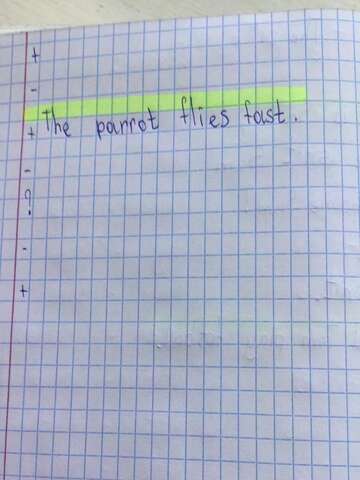 +
-
+ The parrot flies fast.
-
?
-
+